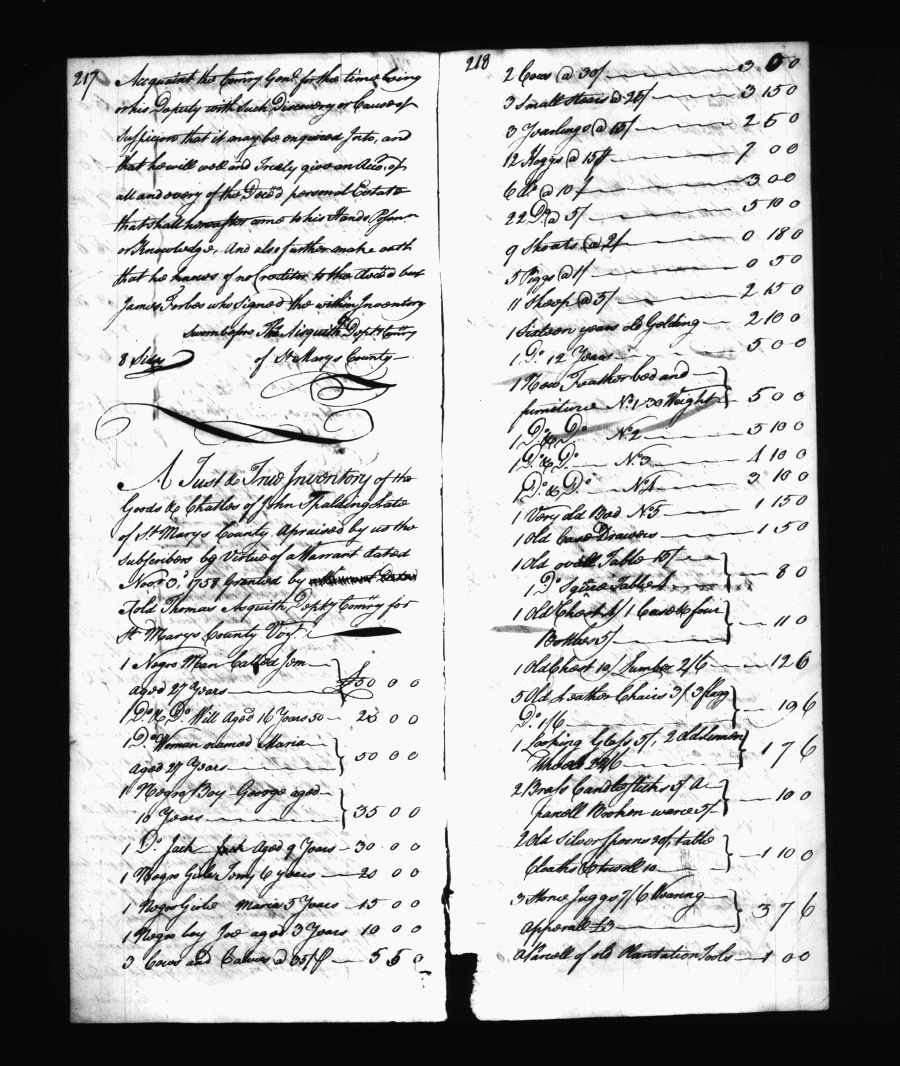 217
Accquaint the Com̃ry Gen.l for the time being
or his Deputy with Such Discovery or Cause of
Suspicion that it may be enquired Into, and
that he will well and Truely give an Acco.t of
all and every of the Deced personal Estate
that shall hereafter come to his Hands Posson
or Knowledge, And also further make oath
that he knows of no Creditor to the deced but
James Forbes who Signed the within Inventory
Sworn before Tho Aisquith Dept.y Com̃ry
8 Sides of St Marys County
A Just & True Inventory of the
Goods & Chatles of John Spalding Late
of St Marys County Apraised by us the
Subscribers by Virtue of a Warrant dated
Nov.r 3.d 1758 Granted by
Thomas Aisquith Dep.ty Com̃ry for
St Marys County Viz.t
1 Negro Man Called Jem
aged 27 Years £50 0 0
1 D.o & D.o Will Aged 16 Years 50 0 0
1 D.o Woman named Maria
aged 27 Years 50 0 0
1 Negro Boy George aged
10 Years 35 0 0
1 D.o Jack Aged 9 Years 30 0 0
1 Negro Girle Tomy 6 years 20 0 0
1 Negro Girle Maria 5 Years 15 0 0
1 Negro boy Joe aged 3 Years 10 0 0
3 Cows and Calves @ 35/ 5 5 0
218
2 Cows @ 30/ 3 0 0
3 Small Stears @ 25/ 3 15 0
3 Yearlings @ 15/ 2 5 0
12 Hoggs @ 15/ 7 0 0
6 D.o @ 10/ 3 0 0
22 D.o @ 5/ 5 10 0
9 Shoats @ 2/ 0 18 0
5 Piggs @ 1/ 0 5 0
11 Sheep @ 5/ 2 15 0
1 Sixteen years old Gelding 2 10 0
1 D.o 12 Years 5 0 0
1 New Feather bed and
furniture N.o 1 30 Weight 5 0 0
1 D.o & D.o N.o 2 5 10 0
1 D.o & D.o N.o 3 4 10 0
1 D.o & D.o N.o 4 3 10 0
1 Very old Bed N.o 5 1 15 0
1 Old Case Drawers 1 5 0
1 Old ovell Table 5/
1 D.o Square Table 8 0
1 Old Chest 1 Case & four
Bottles 5/ 11 0
1 Old Chest 10/ Lumber 2/6 12 6
5 Old Leather Chairs 3/ 3 flagg
D.o 1/6 19 6
1 Looking Glass 5/, 2 old Linnen
Wheels 22/6 1 7 6
2 Brass Candlesticks 5/ A
parcell Broken ware 5/ 10 0
2 Old Silver spoons 20/, table
Cloaths & towell 10 1 10 0
3 Stone Juggs 7/6 Wearing
Apperall £3 3 7 6
A Parcell of old Plantation Tools 1 0 0